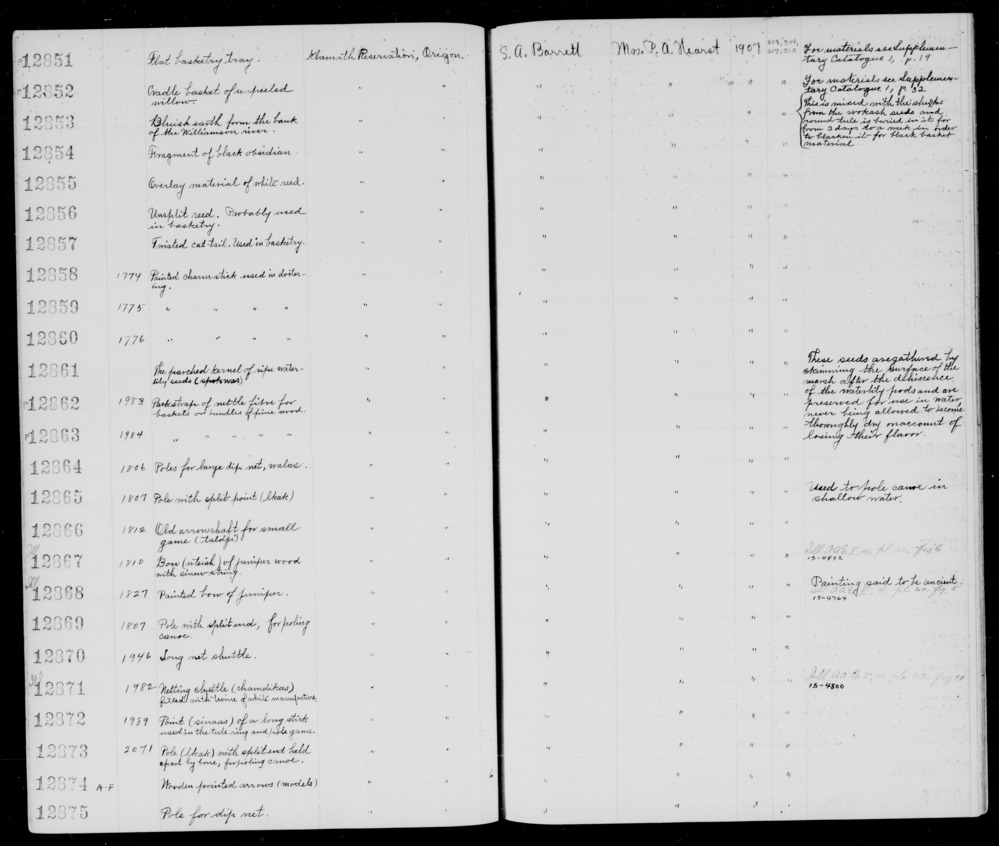 12851 Flat basketry tray. Klamath Reservation, Oregon. S. A. Barrett Mrs. P. A. Hearst 1907 For materials see Supplemen-
tary Catalogue 1, p. 19
12852 Cradle basket of unpeeled " " " " " For materials see Supplemen-
willow. tary Catalogue 1, p. 32
12853 Bluish earth from the bank " " " " " This is mixed with the shucks
of the Williamson river. from the wokash seeds and
round tule is buried in it for
from 3 days to a week in order
to blacken it for black basket
material
12854 Fragment of black obsidian. " " " " "
12855 Overlay material of white reed. " " " " "
12856 Unsplit reed. Probably used " " " " "
in basketry.
12857 Twisted cat-tail. Used in basketry. " " " " "
12858 1774 Painted charm stick used in doctor- " " " " "
ing.
12859 1775 " " " " " " " " "
12860 1776 " " " " " " " " "
12861 The parched kernel of ripe water- " " " " " These seeds are gathered by
lily seeds (spokwas) skimming the surface of the
marsh after the dehiscence
of the waterlily pods and are
preserved for use in water,
never being allowed to become
thoroughly dry on account of
losing their flavor.
12862 1983 Pack straps of nettle fibre for " " " " "
baskets or bundles of fine wood.
12863 1984 " " " " " " " " "
12864 1806 Poles for large dip net, walas. " " " " "
12865 1807 Pole with split point (lkak) " " " " " Used to pole canoe in
shallow water.
12866 1812 Old arrowshaft for small " " " " "
game (taldji)
12867 1810 Bow (nteish) of juniper wood " " " " " fig 6
with sinew string. 15-4872
12868 1827 Painted bow of juniper. " " " " " Painting said to be ancient.
15-4764
12869 1807 Pole with split end, for poling " " " " "
canoe.
12870 1946 Long net shuttle. " " " " "
12871 1982 Netting shuttle (chamdikas) " " " " "
filled with twine of white manufacture. 15-4800
12872 1989 Point (sinaas) of a long stick " " " " "
used in the tule ring and pole game.
12873 2071 Pole (lkak) with split end held " " " " "
apart by bone, for poling canoe.
12874 A-F Wooden pointed arrows (models) " 6 " " " "
12875 Pole for dip net. " " " " "